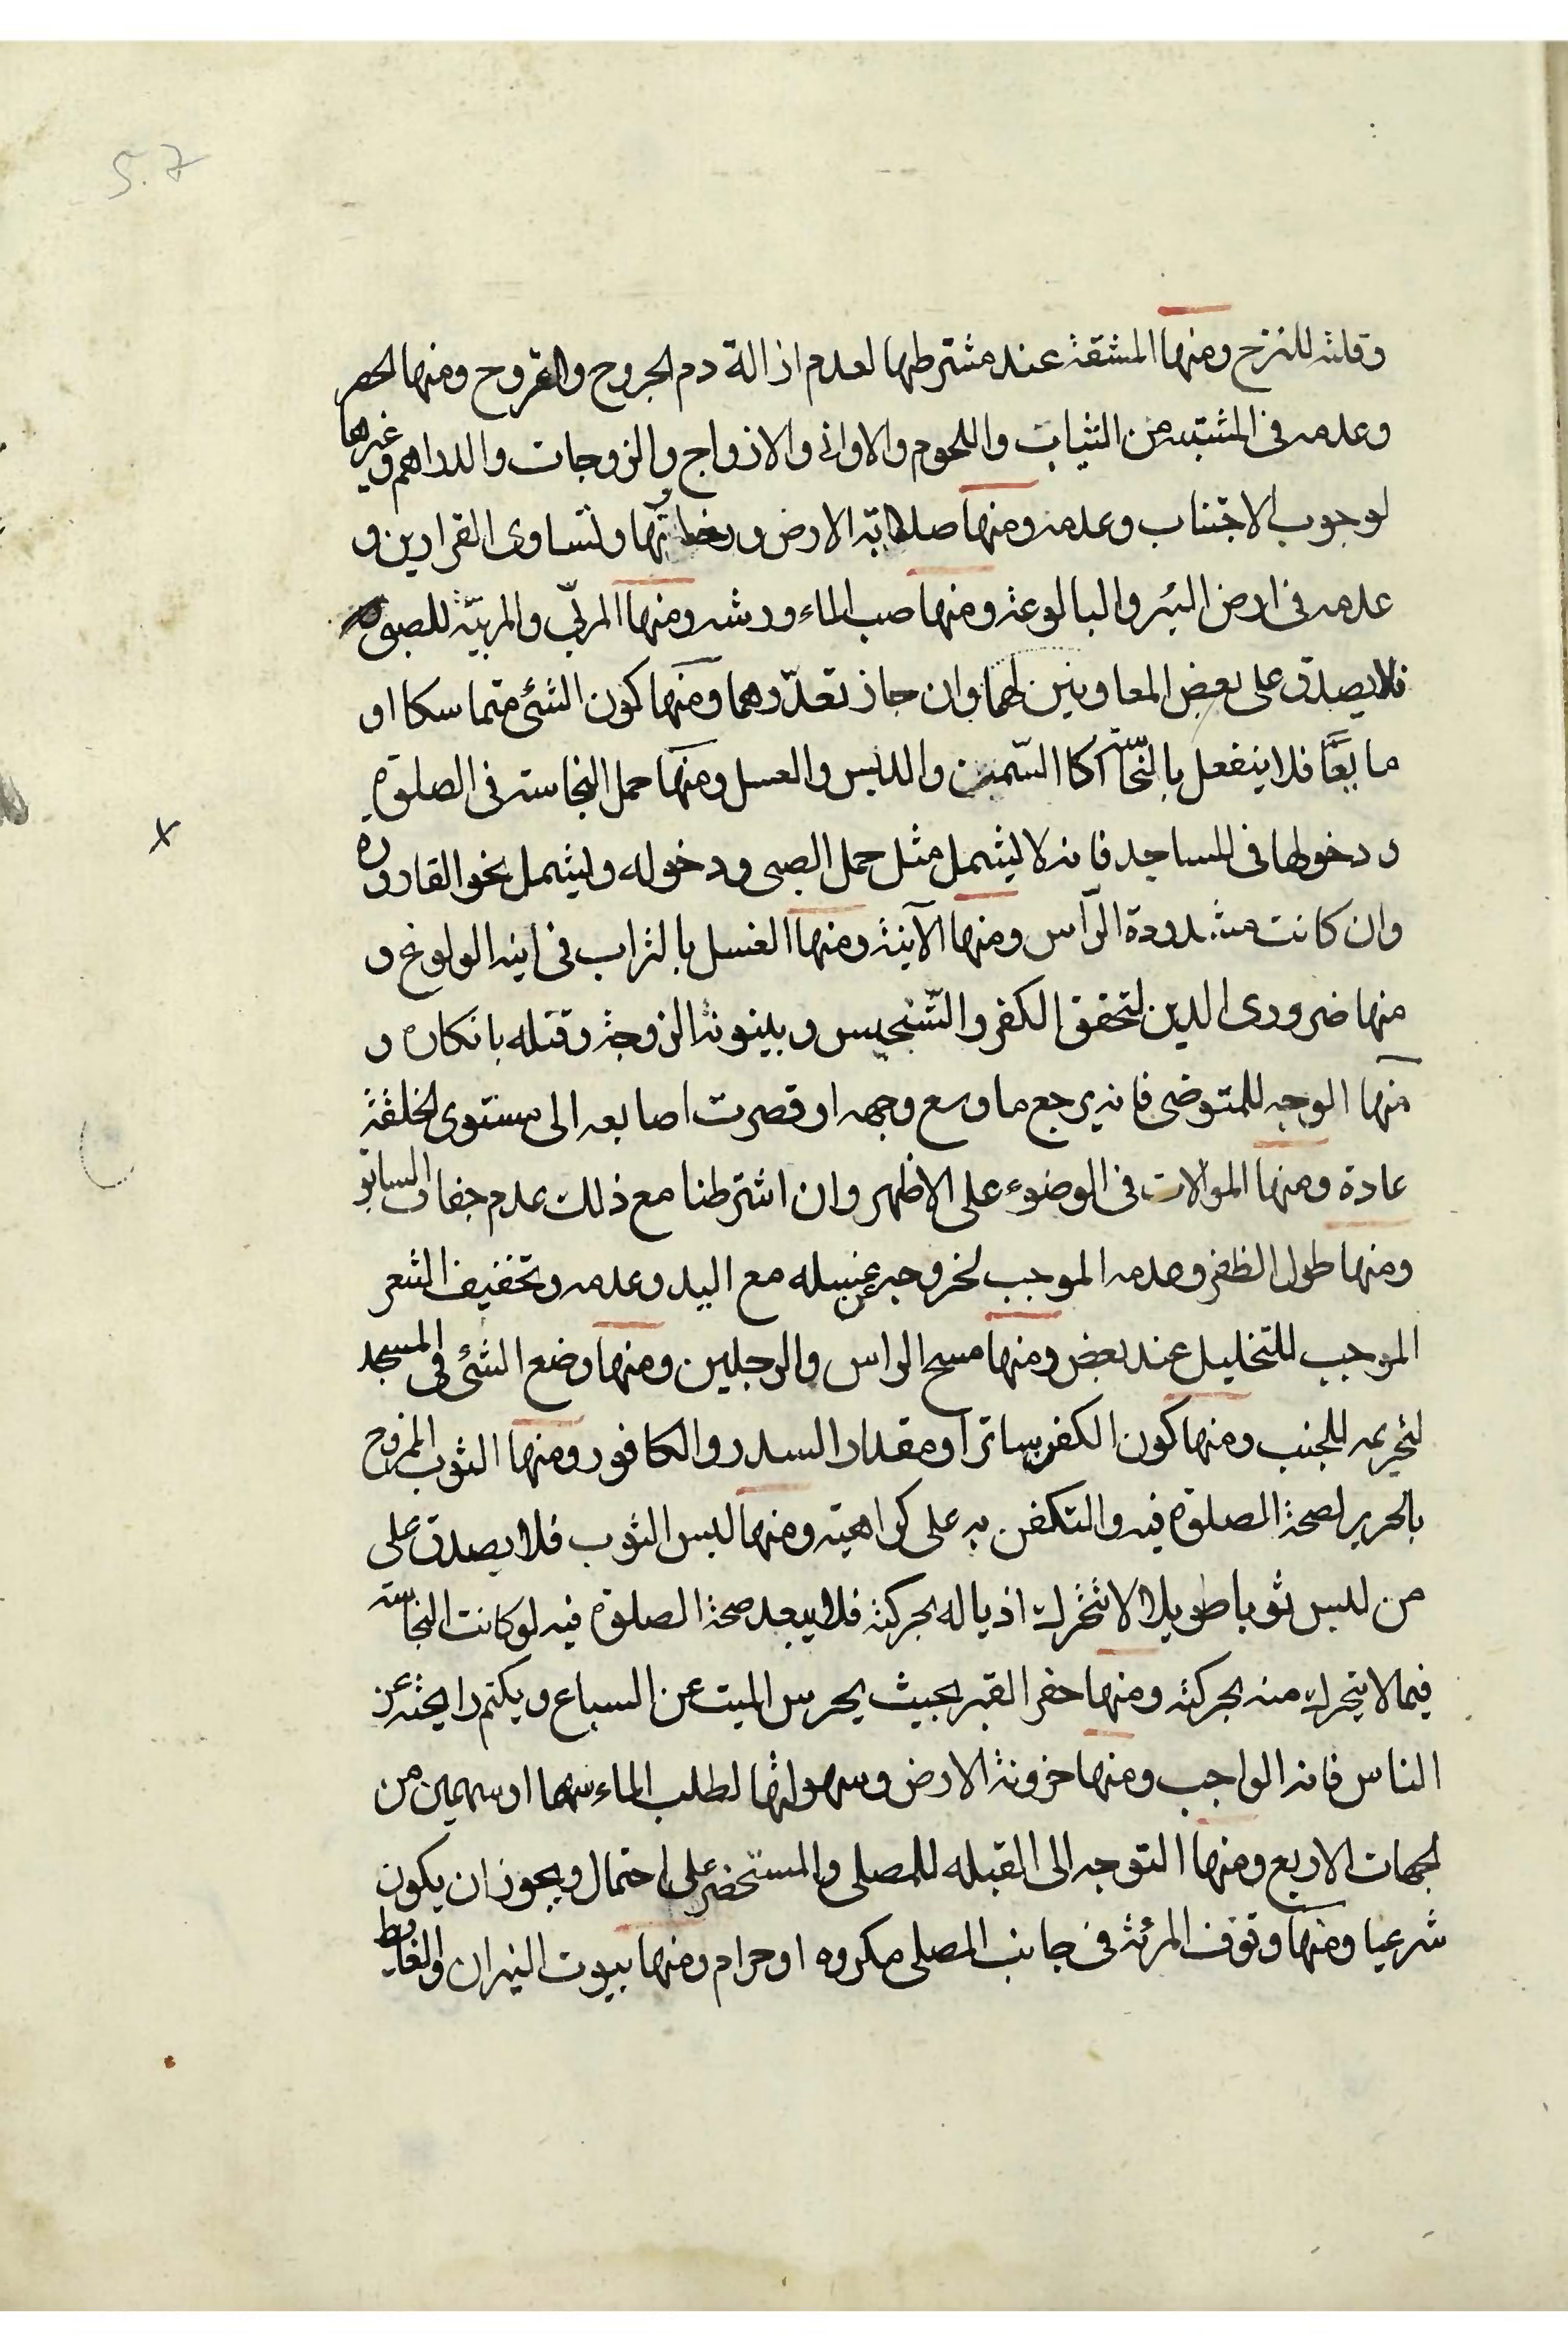 وقلته للنزح ومنها المشقة عند مشترطها لعدم ازالة دم الجروح والقروح ومنها الحصر
وعدمه فى المشتبه من الثياب واللحوم والاوانى والازواج والزوجات والدراهم وغيرها
لوجوب الاجتناب وعدمه ومنها صلابة الارض ورخاوتها وتساوى القرارين و
عدمه فى ارض البئر والبالوعة ومنها صب الماء ورشه ومنها المربّى والمربيّة للصبى
فلا يصدق على بعض المعاونين لهما وان جاز تعدّدهما ومنها كون الشئ متماسكا او
مايعًا فلا ينفعل بالنجاسة كالسّمن والدبس والعسل ومنها حمل النجاسة فى الصلوة
ودخولها فى المساجد فانه لا يشمل مثل حمل الصبى ودخوله ويشمل نحو القارورة
وان كانت مشدودة الرأس ومنها الآنية ومنها الغسل بالتراب فى انية الولوغ و
منها ضرورى الدين لتحقق الكفر والتّنجيس وبينونة الزوجة وقتله بانكاره و
منها الوجه للمتوضى فانه يرجع ما وسع وجهه او قصرت اصابعه الى مستوى الخلقة
عادة ومنها الموالات فى الوضوء على الاظهر وان اشترطنا مع ذلك عدم جفاف السابق
ومنها طول الظفر وعدمه الموجب لخروجه عن غسله مع اليد وعدمه وتخفيف الشعر
الموجب للتخليل عند بعض ومنها مسح الراس والرجلين ومنها وضع الشئ فى المسجد
لتحريمه للجنب ومنها كون الكفن ساترا ومقدار السدر والكافور ومنها الثوب الممزوج
بالحرير لصحة الصلوة فيه والتكفن به على كراهية ومنها لبس الثوب فلا يصدق على
من لبس ثوبا طويلا لا تتحرك اذياله بحركته فلا يبعد صحة الصلوة فيه لو كانت النجاسة
فيما لا يتحرك منه بحركته ومنها حفر القبر بحيث يحرس الميت عن السباع ويكتم رايحته عن
الناس فانه الواجب ومنها حزونة الارض وسهولتها لطلب الماء سهما او سهمين من
الجهات الاربع ومنها التوجه الى القبله للمصلى والمستحضر على احتمال ويجوز ان يكون
شرعيا ومنها وقوف المرئة فى جانب المصلى مكروه او حرام ومنها بيوت النيران والغايط